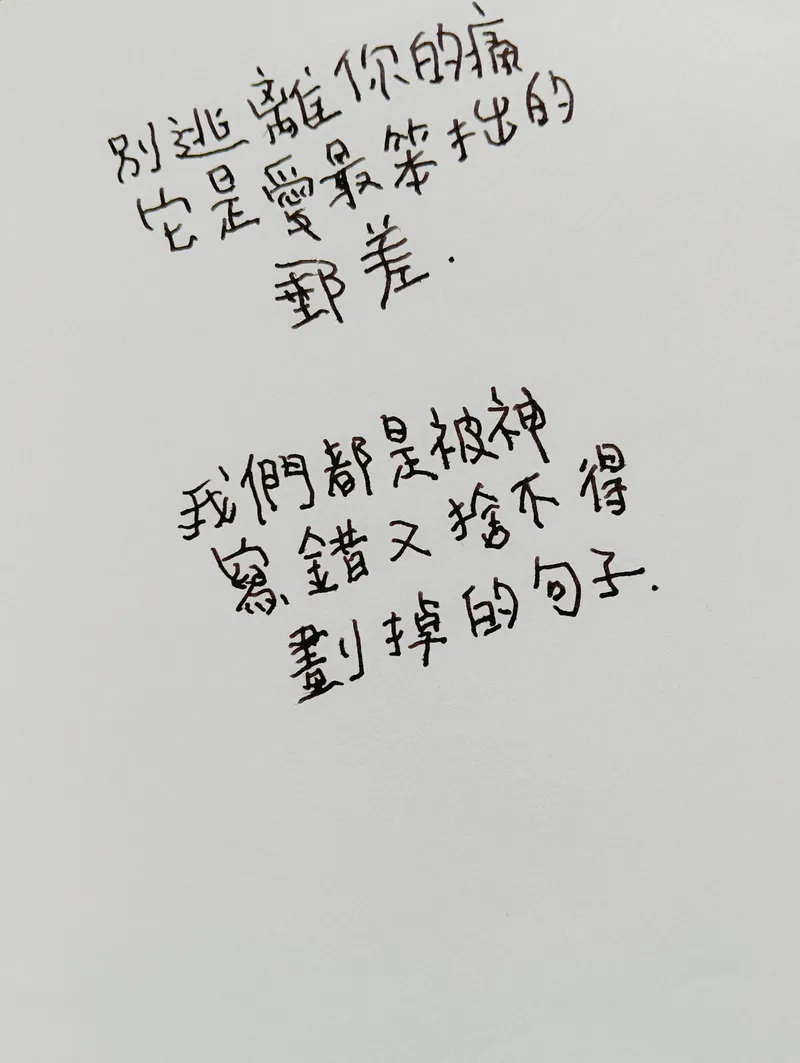 別逃離你的痛
它是愛最笨拙的
郵差.
我們都是被神
寫錯又捨不得
劃掉的句子.